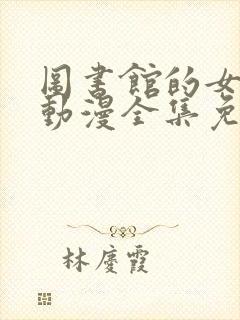 圖書館的女
動漫全集免
林慶霞